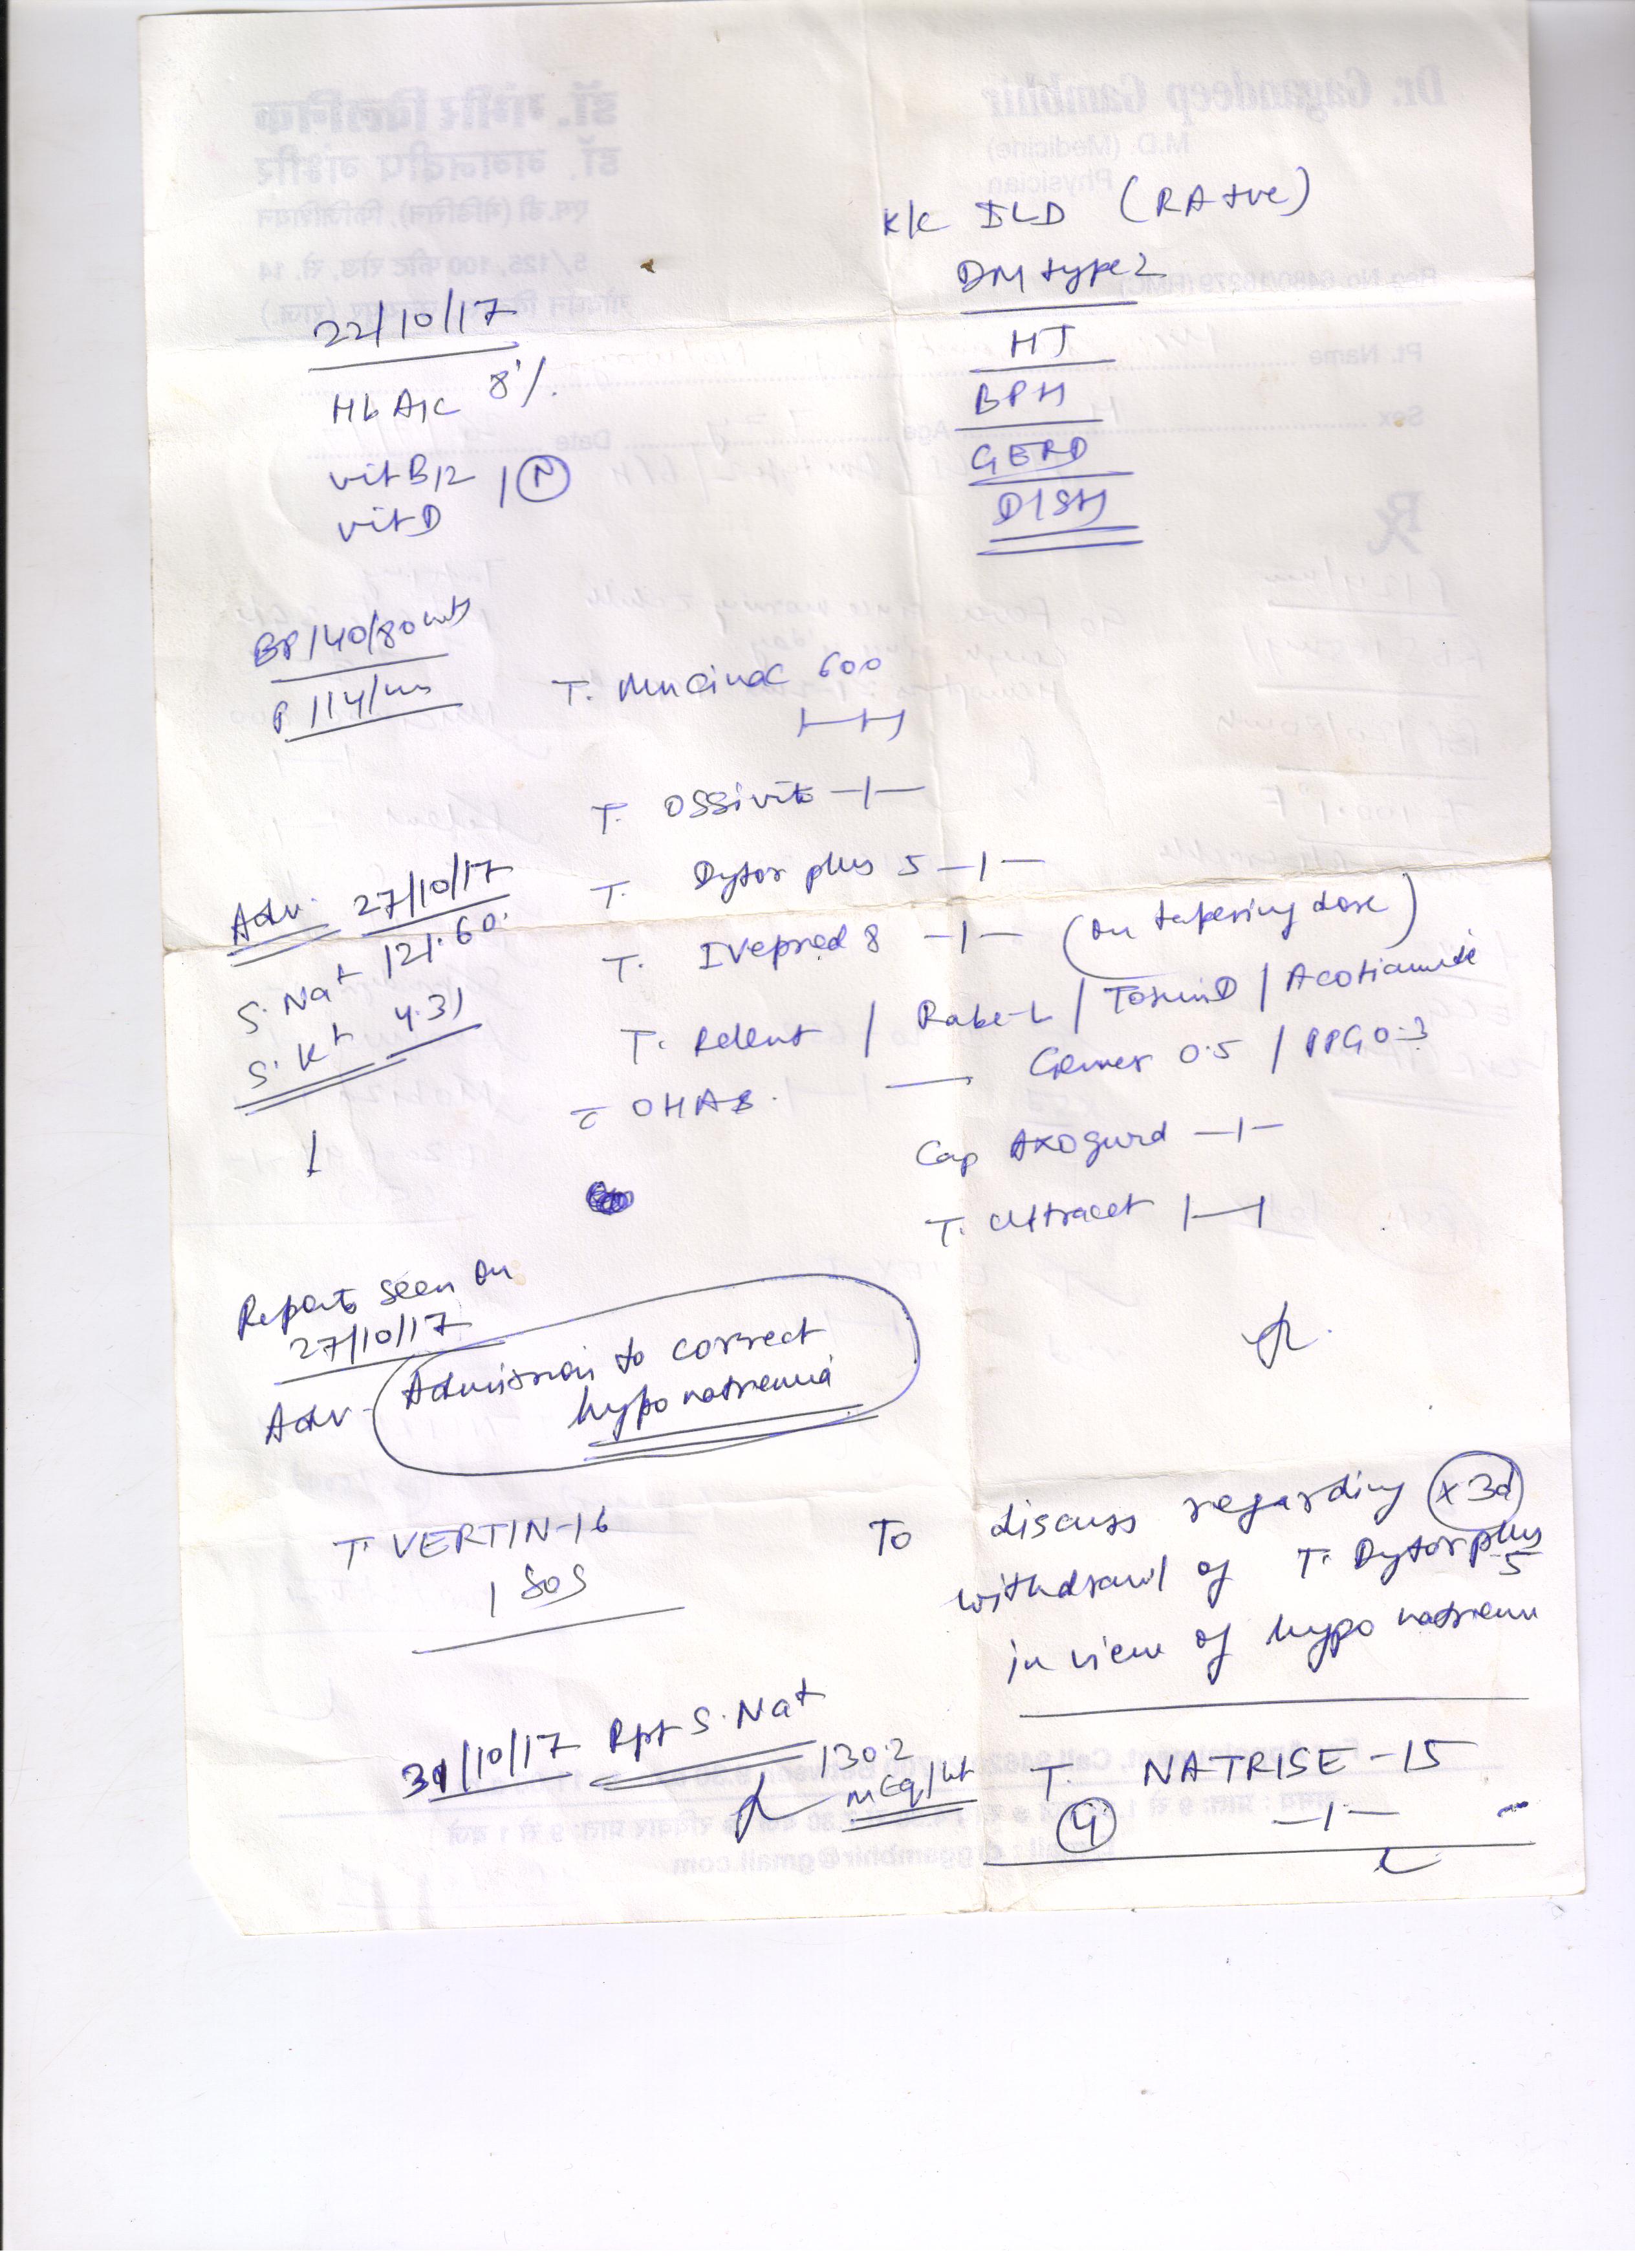 K/C ILD (RA +ve)
DM type 2
HT
BPH
GERD
DISH
22/10/17
HbA1c 8%
vit B12
vit D
N
BP 140/80
P 114/
T. Mucinac 600
T. Ossivite -1-
T. Dytor plus 5 -1-
Adv. 27/10/17
S. Na+ 121.60
S. K+ 4.31
T. IVepred 8 -1- (on tapering dose)
T. Relent / Rabe-L / / Acotiamide
OHAs. — Gemer 0.5 / PPG 0.3
Cap Axogurd -1-
T. Ultracet 1-1
Reports seen on
27/10/17
Adv - Admission to correct
hyponatremia
T. VERTIN-16
1 SOS
To discuss regarding x 3d
withdrawl of T. Dytor plus
5
in view of hyponatremi
31/10/17 Rpt S. Na+
130.2
mEq/Lt
T. NATRISE-15
4 -1-